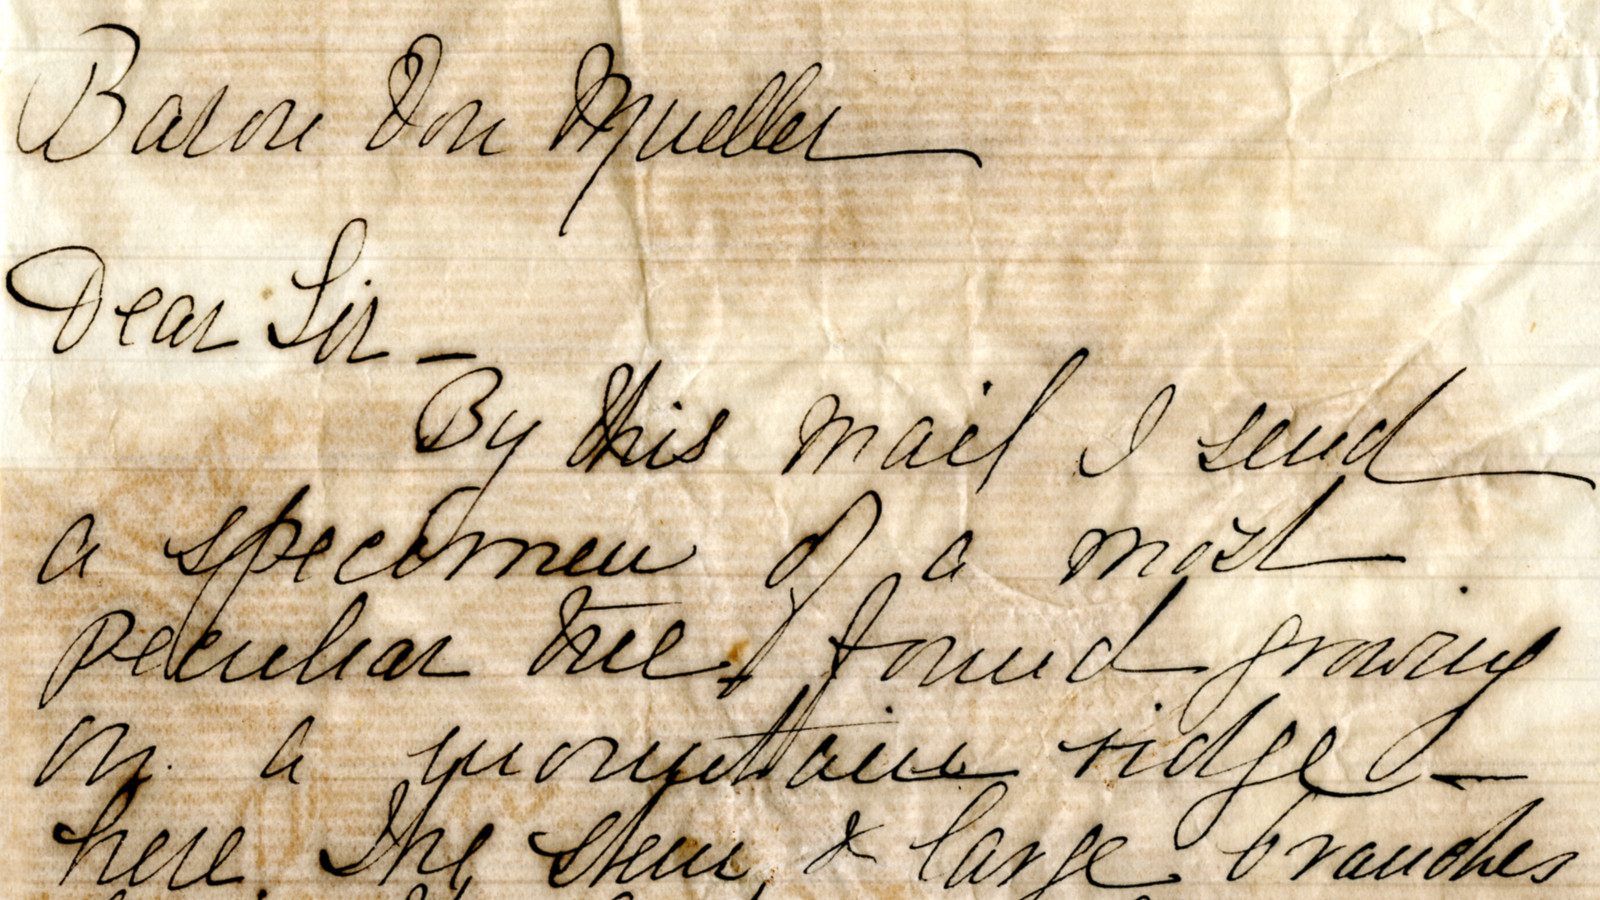 Baron Von Mueller
Dear Sir –
By this mail I send
a specimen of a most
peculiar tree found growing
on a mountain ridge –
here. The stem & large branches